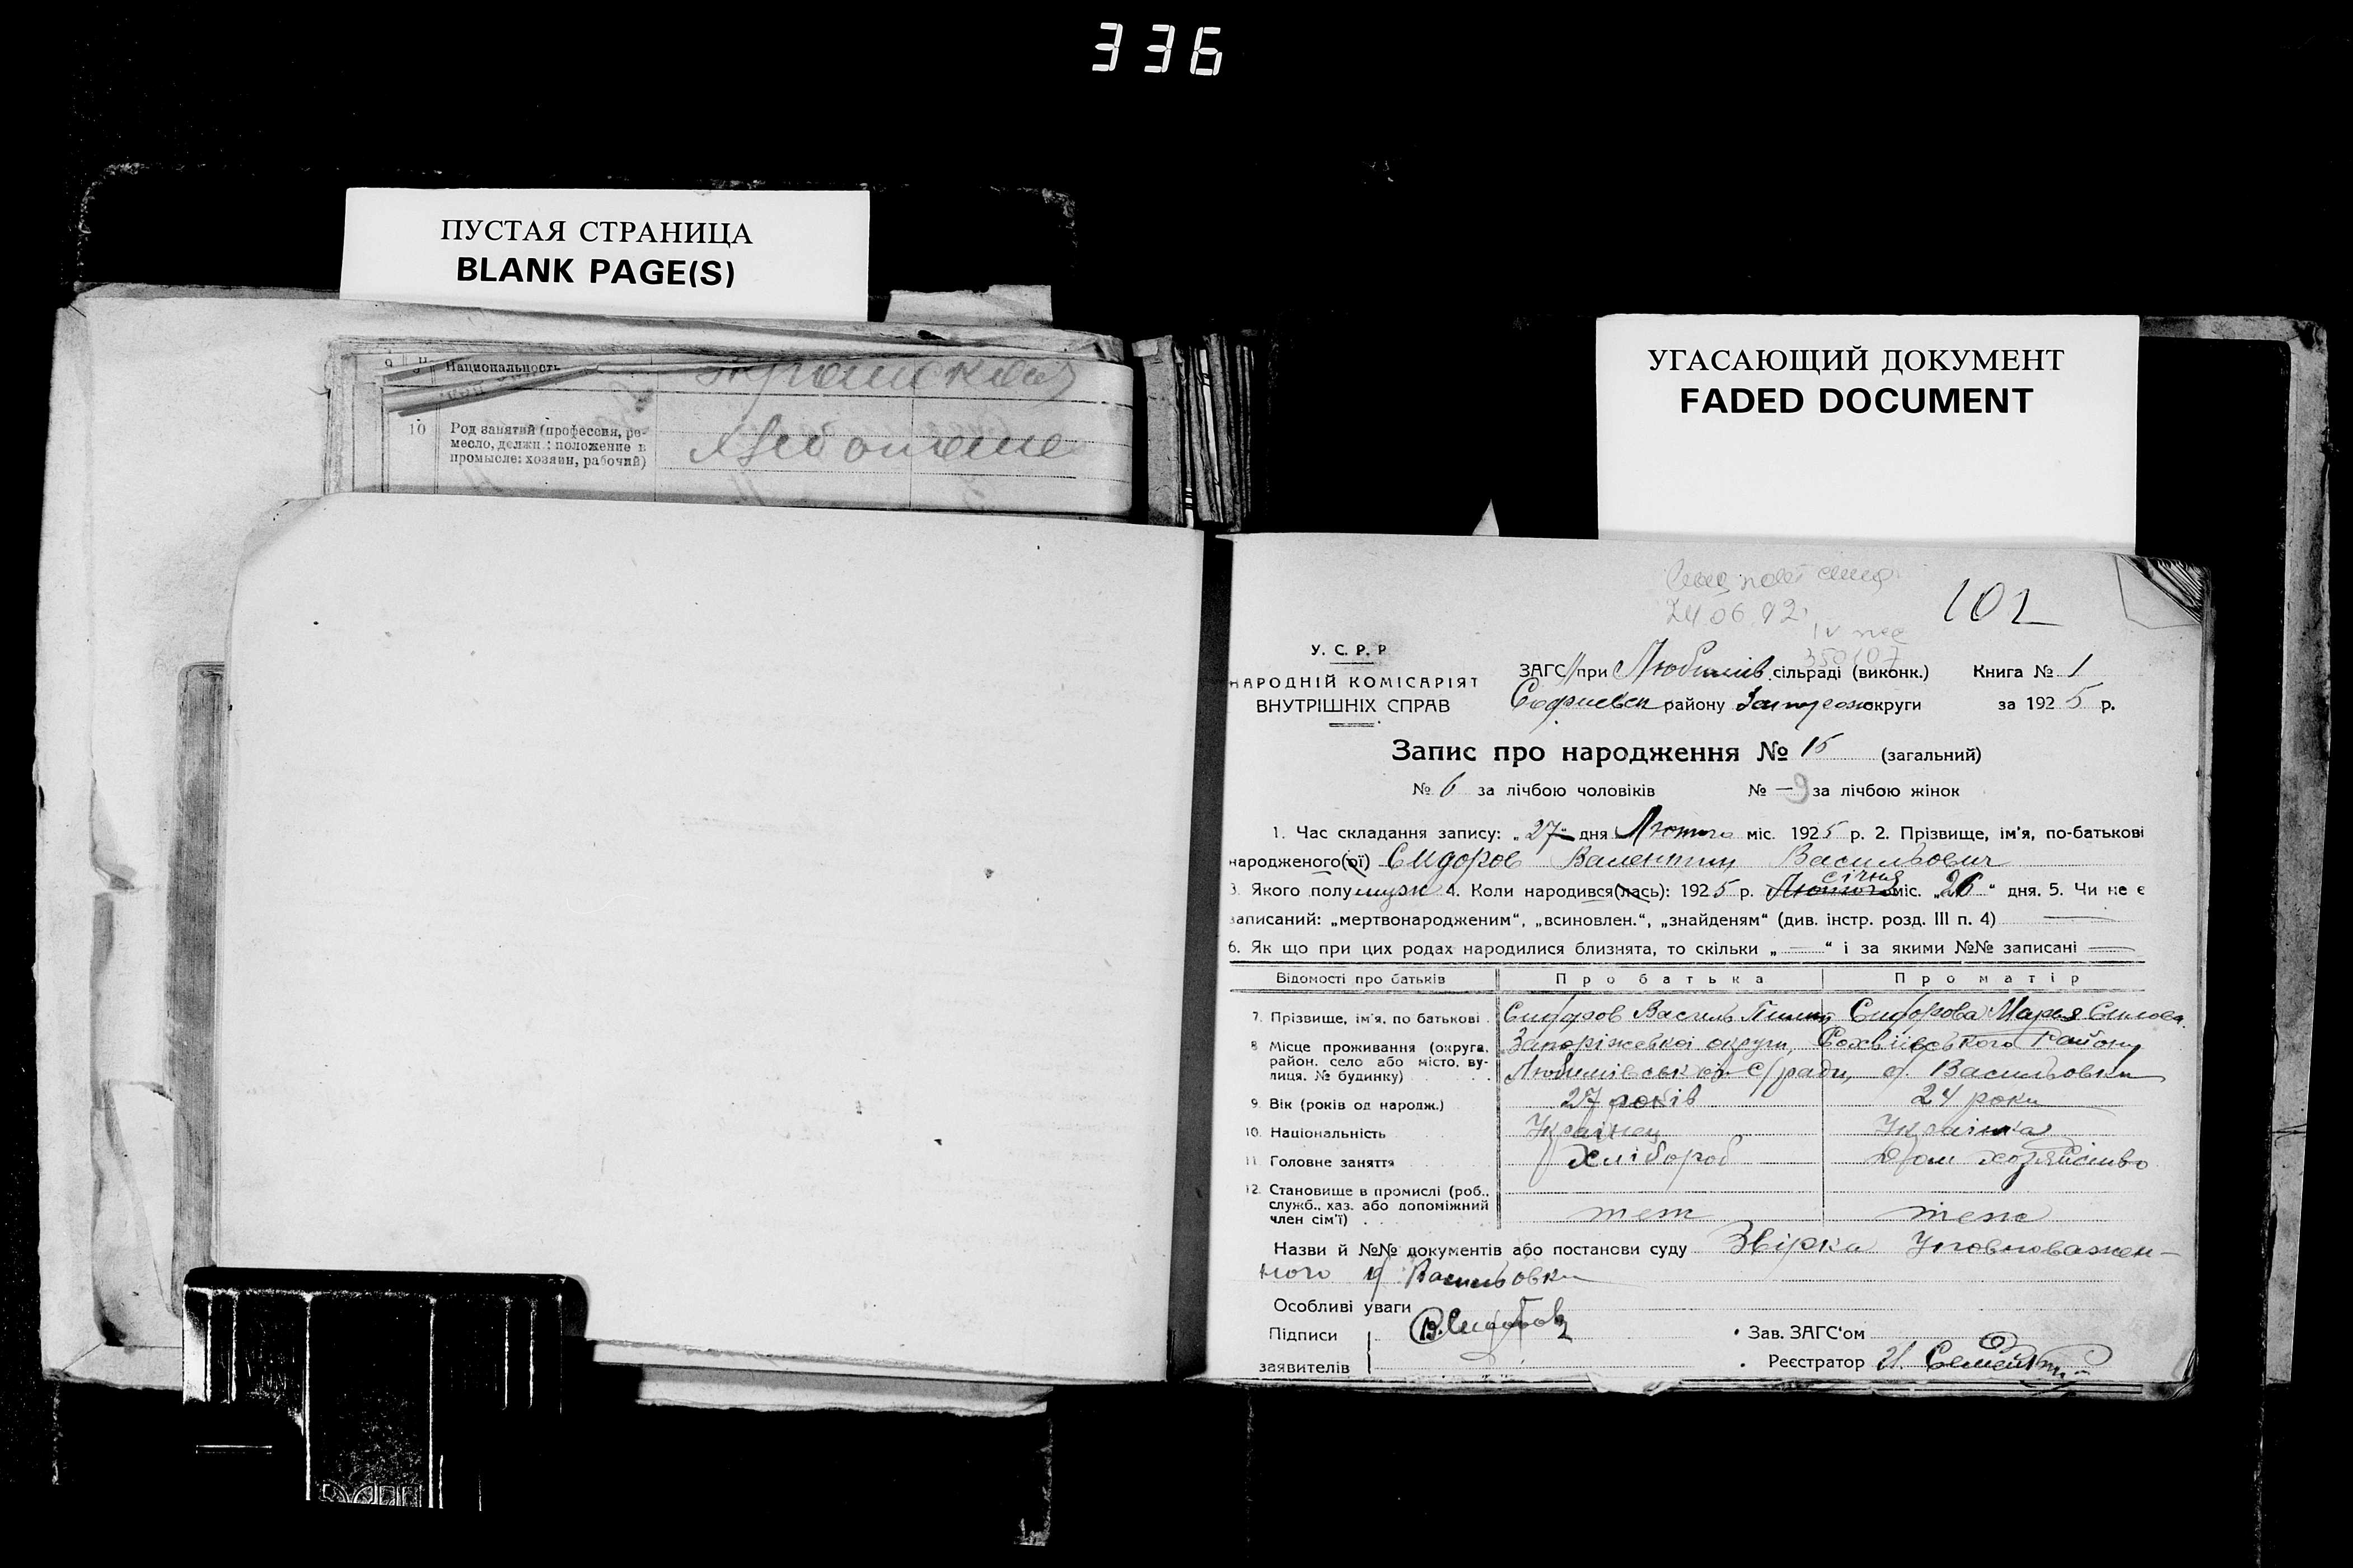 336
ПУСТАЯ СТРАНИЦА
BLANK PAGE(S)
УГАСАЮЩИЙ ДОКУМЕНТ
FADED DOCUMENT
9 Национальность
10 Род занятий (профессия, ре-
месло, должн.: положение в
промысле: хозяин, рабочий)
24.06.92
102
У. С. Р. Р
НАРОДНІЙ КОМІСАРІЯТ
ВНУТРІШНІХ СПРАВ
ЗАГС при Любимів сільраді (виконк.) Книга № 1
Софиевск району Запорож округи за 1925 р.
Запис про народження № 15 (загальний)
№ 6 за лічбою чоловіків № — 9 за лічбою жінок
1. Час складання запису: „27" дня Лютого міс. 1925 р. 2. Прізвище, ім'я, по-батькові
народженого(ої) Сидоров Валентин Васильович
3. Якого полу мужк 4. Коли народився(лась): 1925 р. Лютого січня міс. „26" дня. 5. Чи не є
записаний: „мертвонародженим", „всиновлен.", „знайденям" (див. інстр. розд. III п. 4) —
6. Як що при цих родах народилися близнята, то скільки „—" і за якими №№ записані —
Відомості про батьків Про батька Про матір
7. Прізвище, ім'я, по батькові Сидоров Василь Сидорова Марія
8 Місце проживання (округа, район, село або місто, ву-
лиця, № будинку) Запоріжської округи, Району
Любимівської с/ради, Васильовки
9. Вік (років од народж.) 27 років 24 роки
10. Національність Українец Українка
11. Головне заняття Хлібороб Дом хозяйство
12. Становище в промислі (роб.,
служб., хаз. або допоміжний
член сім'ї) теж теж
Назви й №№ документів або постанови суду Звірка Уповноважен-
ного Васильовки
Особливі уваги
Підписи В. Сидоров Зав. ЗАГС'ом
заявителів Реєстратор